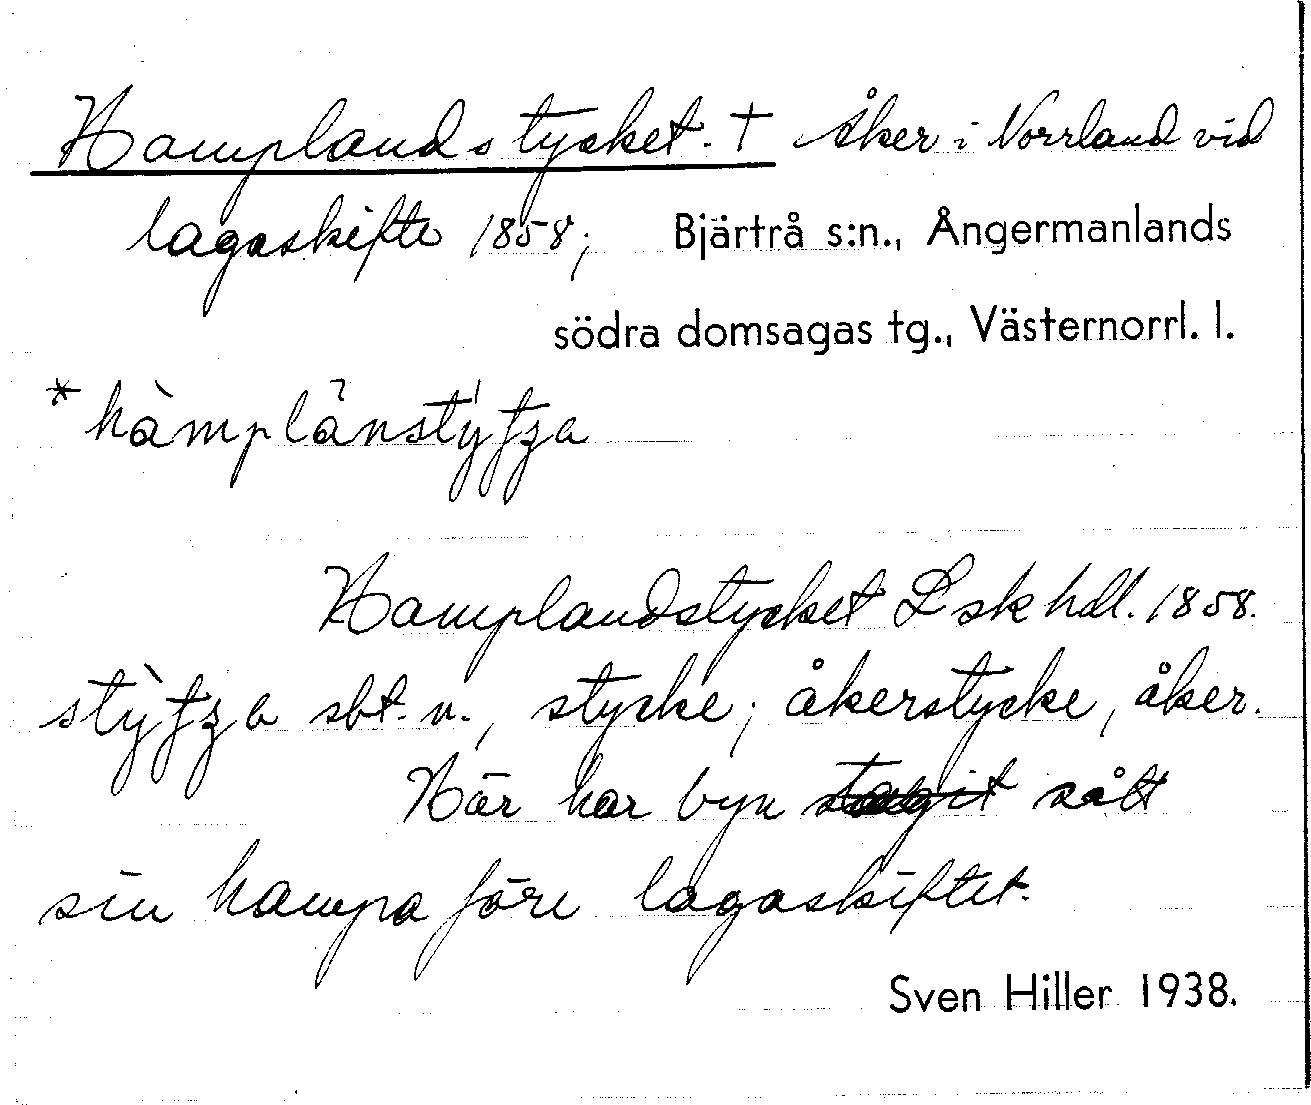 Hamplandstycket. † Åker i Norrland vid
lagaskifte 1858; Bjärtrå s:n., Ångermanlands
södra domsagas tg., Västernorrl. l.
Hamplandstycket Lsk hdl. 1858.
sbt. n., stycke; åkerstycke, åker.
Här har byn sått
sin hampa före lagaskiftet.
Sven Hiller 1938.